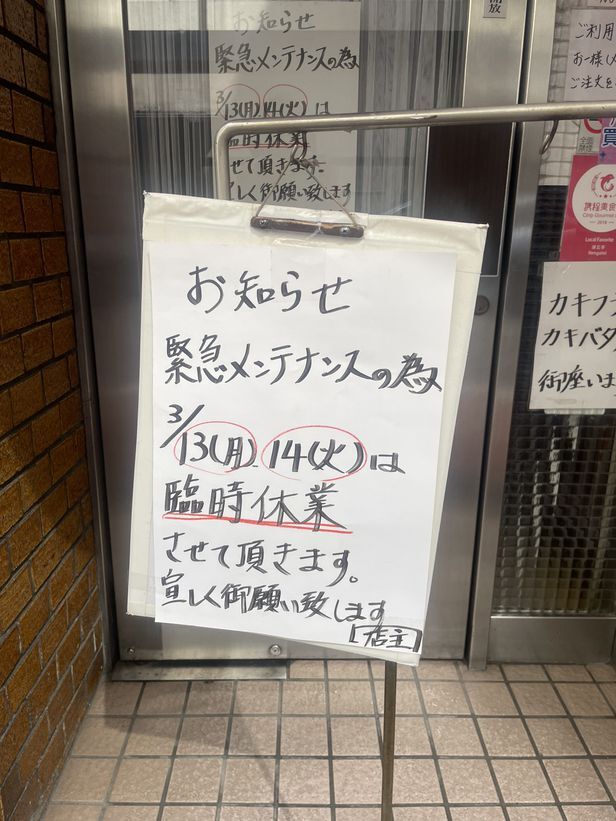 お知らせ
緊急メンテナンスの為
3/13(月) 14(火)は
臨時休業
させて頂きます。
宜しく御願い致します
開放
ご利用
お一様(メ
ご注文を
お知らせ
緊急メンテナンスの為
3/13(月).14(火)は
臨時休業
させて頂きます。
宜しく御願い致します
[店主]
携程美食
Local Favorite
カキフ
カキバタ
御座いま